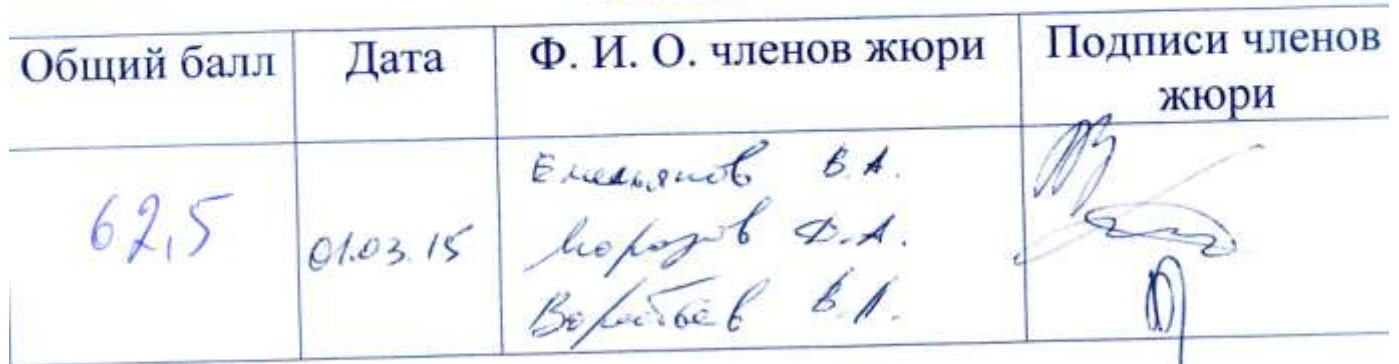 Общий балл Дата Ф. И. О. членов жюри Подписи членов жюри
62,5 01.03.15
Емельянов В.А.
Морозов Д.А.
Воробьев В.Л.